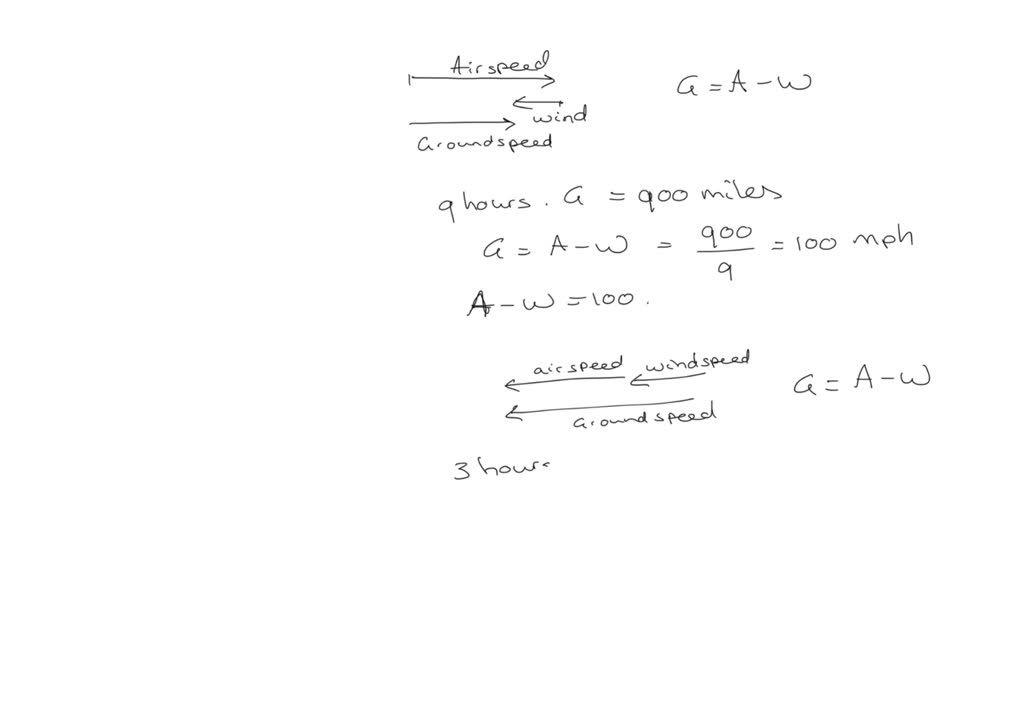 Airspeed
G = A - W
wind
Groundspeed
9 hours. G = 900 miles
G = A - W = 900/9 = 100 mph
A - W = 100.
airspeed windspeed
G = A - W
Groundspeed
3 hours